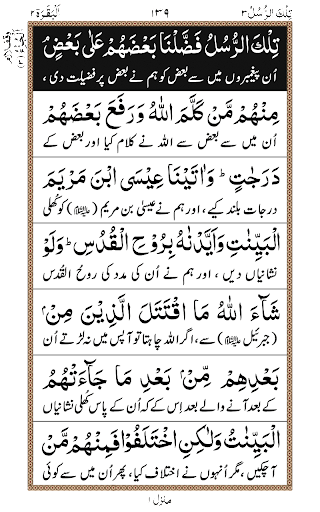 تِلْكَ الرُّسُلُ ٣ ١٣٩ اَلْبَقَرَة ٢
تِلْكَ الرُّسُلُ فَضَّلْنَا بَعْضَهُمْ عَلٰى بَعْضٍ ۘ
اُن پیغمبروں میں سے بعض کو ہم نے بعض پر فضیلت دی ،
مِنْهُمْ مَّنْ كَلَّمَ اللّٰهُ وَرَفَعَ بَعْضَهُمْ
اُن میں سے بعض سے اللہ نے کلام کیا اور بعض کے
دَرَجٰتٍ ؕ وَاٰتَيْنَا عِيْسَى ابْنَ مَرْيَمَ
درجات بلند کیے ، اور ہم نے عیسٰی بن مریم (علیہ السلام) کو کھلی
الْبَيِّنٰتِ وَاَيَّدْنٰهُ بِرُوْحِ الْقُدُسِ ؕ وَلَوْ
نشانیاں دیں ، اور ہم نے اُن کی مدد کی روح القدس
شَآءَ اللّٰهُ مَا اقْتَتَلَ الَّذِيْنَ مِنْۢ
(جبرئیل علیہ السلام) سے، اگر اللہ چاہتا تو آپس میں نہ لڑتے اُن
بَعْدِهِمْ مِّنْۢ بَعْدِ مَا جَآءَتْهُمُ
کے بعد آنے والے بعد اِس کے کہ اُن کے پاس کھلی نشانیاں
الْبَيِّنٰتُ وَلٰكِنِ اخْتَلَفُوْا فَمِنْهُمْ مَّنْ
آچکیں ، مگر اُنہوں نے اختلاف کیا ، پھر اُن میں سے کوئی
منزل ١